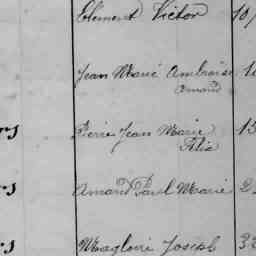 Clément Victor 10
Jean Marie Ambroise
Amand
Pierre Jean Marie 13
Amand Paul Marie 2
Magloire Joseph 32